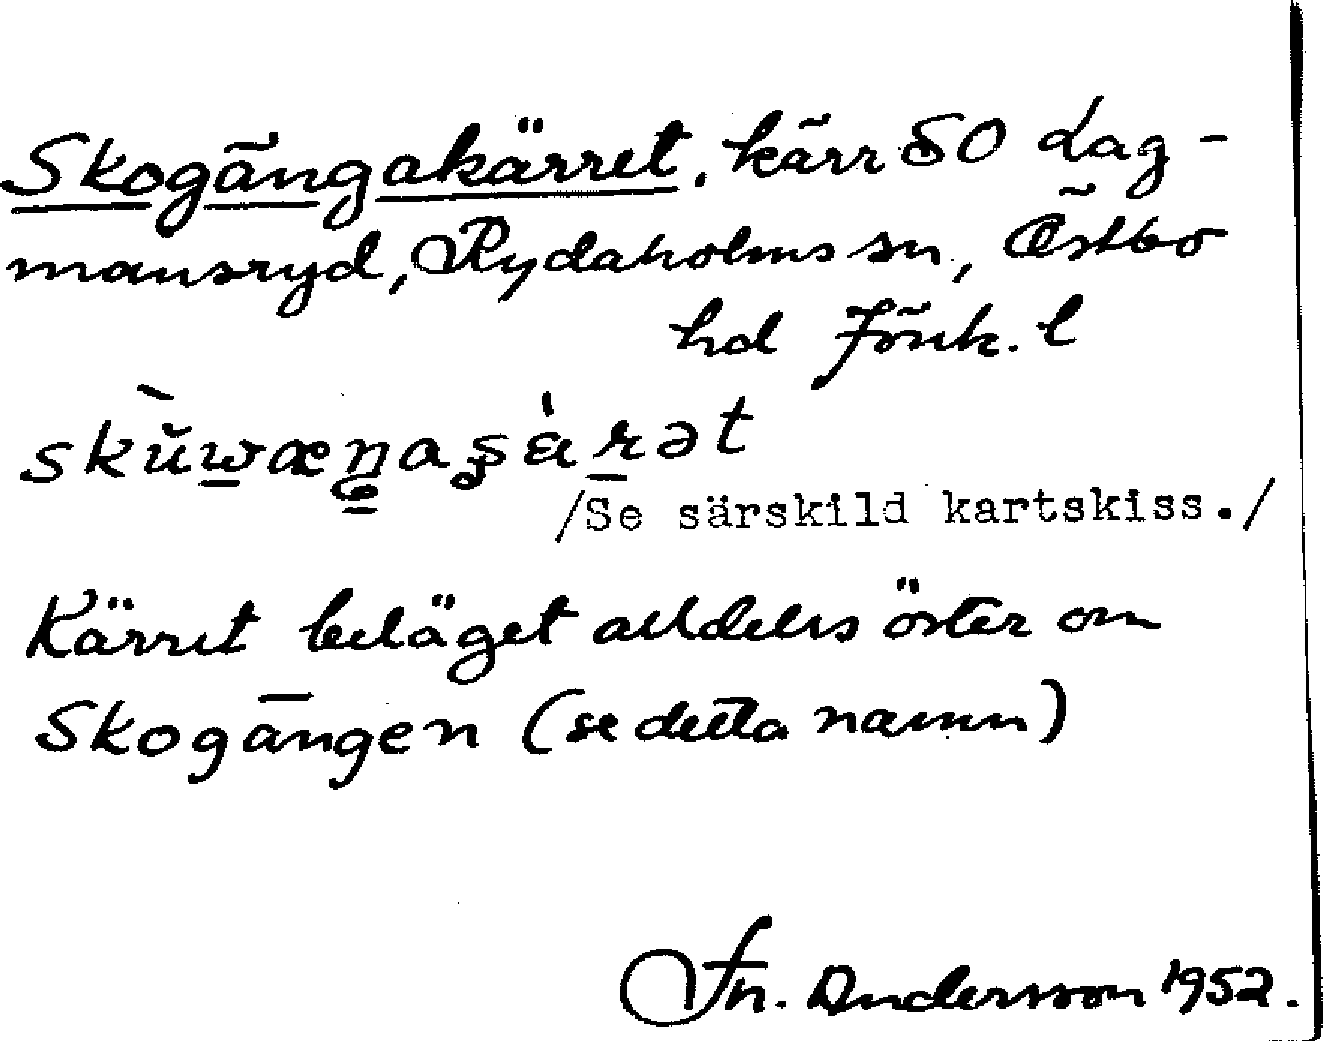 Skogängakärret, kärr SO Lag-
mansryd, Rydaholms sn, Östbo
hd Jönk. l
skŭwæŋaʂàrət
/Se särskild kartskiss./
Kärret beläget alldeles öster om
Skogängen (se detta namn)
Fr. Andersson 1952.